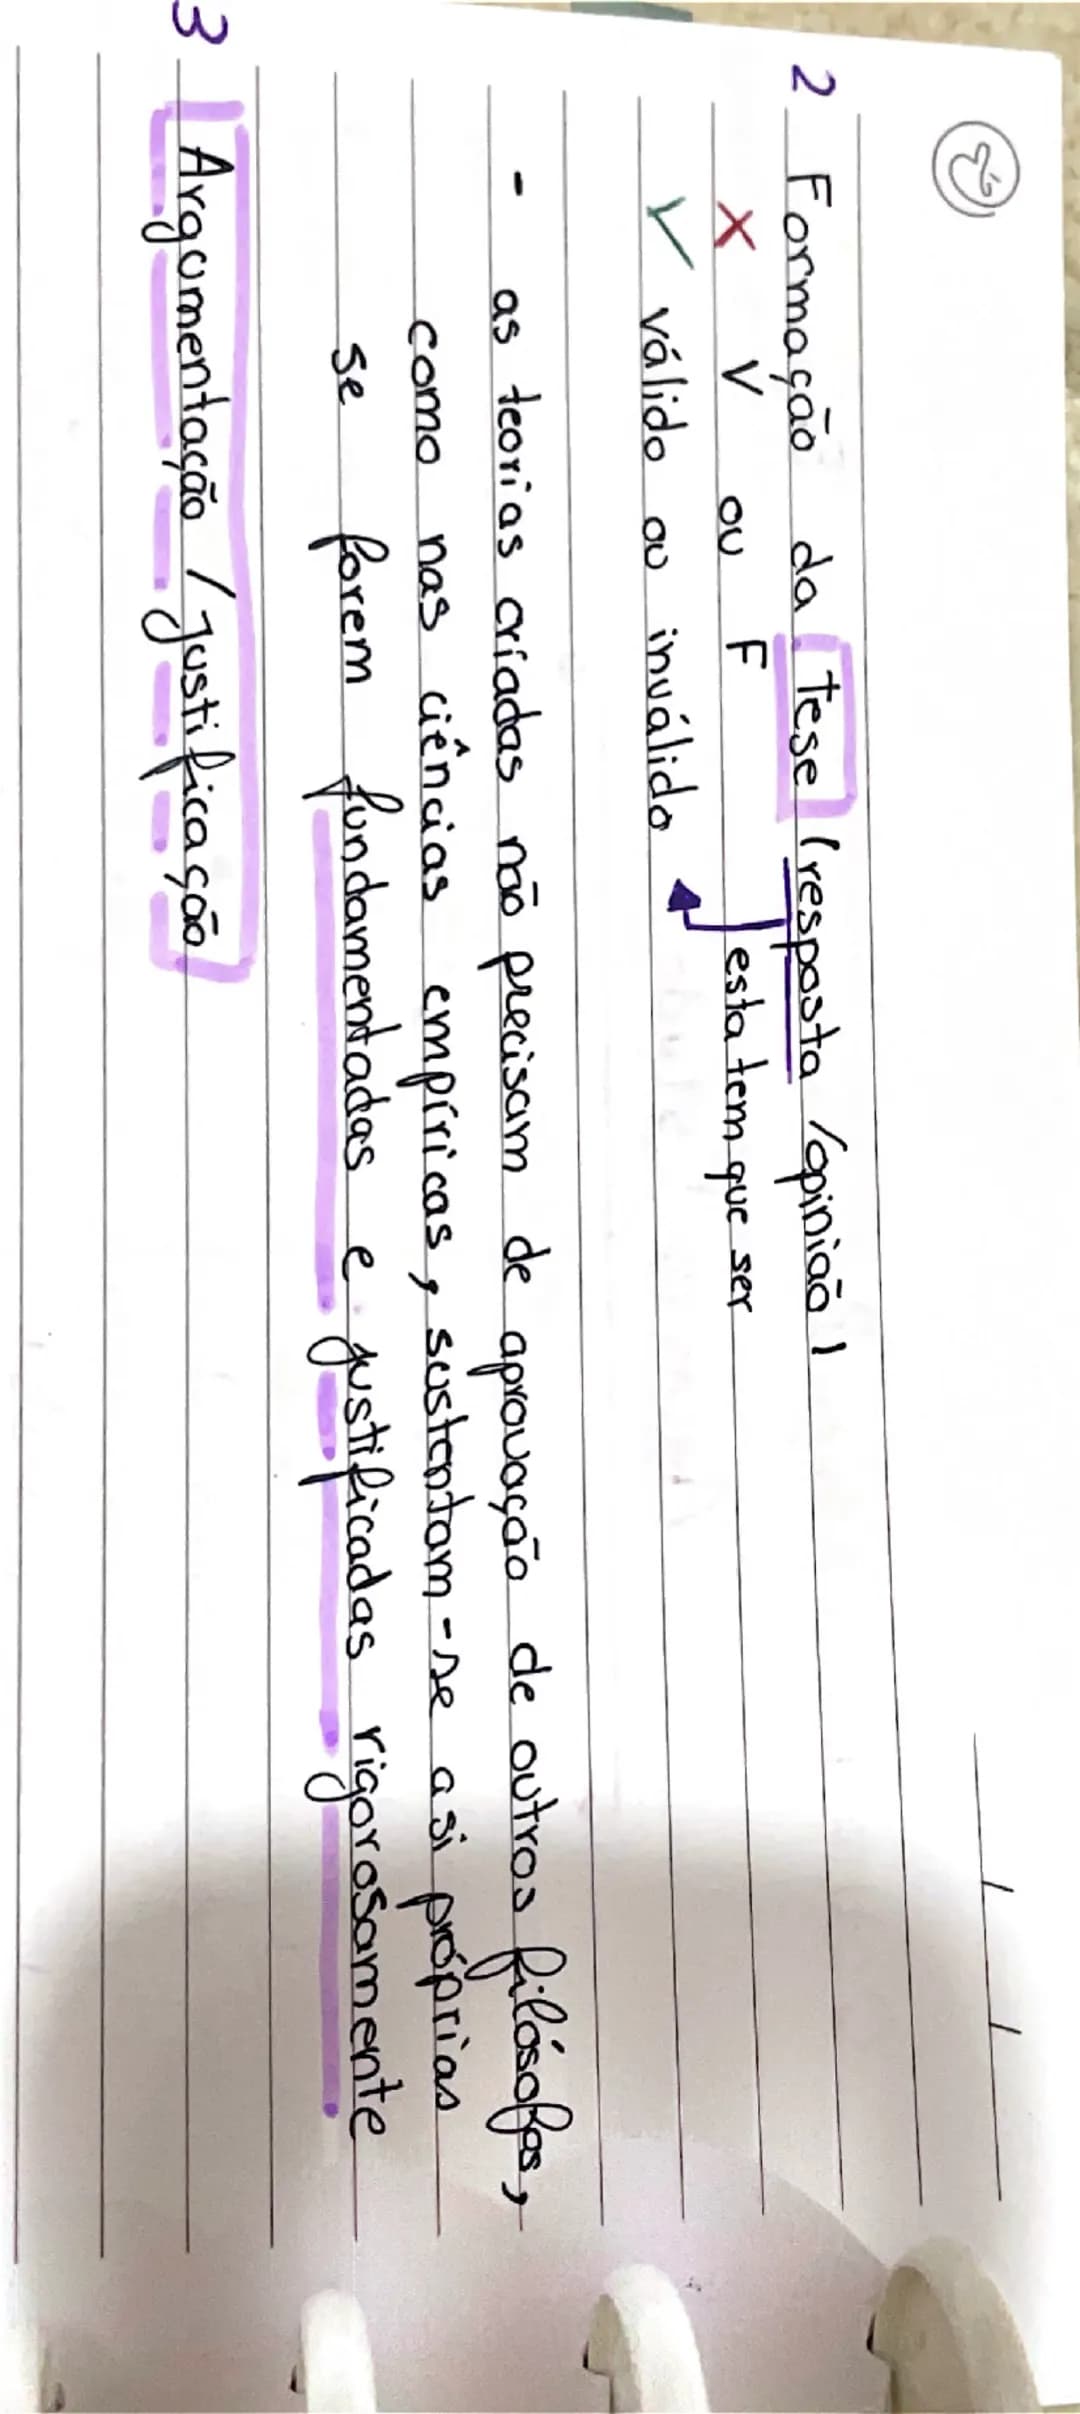 2 Formação da Tese (resposta / opinião)
X V ou F esta tem que ser
✓ válido ou inválido
- as teorias criadas não precisam de aprovação de outros filósofos,
como nas ciências empíricas, sustentam-se a si próprias
se forem fundamentadas e justificadas rigorosamente
3 Argumentação / Justificação